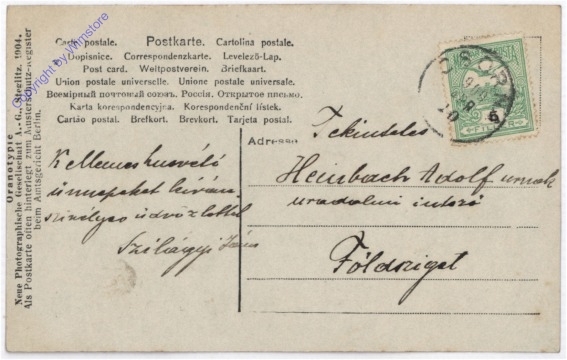 Carte postale. Postkarte. Cartolina postale.
Dopisnice. Correspondenzkarte. Levelező-Lap.
Post card. Weltpostverein. Briefkaart.
Union postale universelle. Unione postale universale.
Всемірный почтовый союзъ. Россія. Открытое письмо.
Karta korespondencyjna. Korespondenční lístek.
Cartão postal. Brefkort. Brevkort. Tarjeta postal.
Kellemes husvéti
ünnepeket kíván
szivélyes üdvözlettel
Szilágyi János
Adresse
Tekintetes
Heinbach Adolf urnak
uradalmi intéző
Földsziget
Oranotypie
Neue Photographische Gesellschaft A.-G., Steglitz. 1904.
Als Postkarte offen hinterlegt zum Musterschutz-Register
beim Amtsgericht Berlin.
Copyright by Wimstore